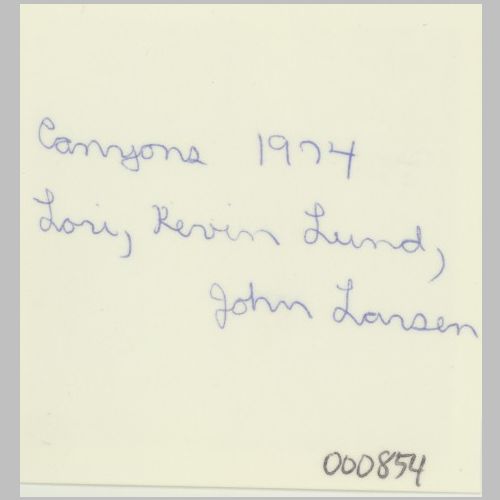 Canyons 1974
Lori, Kevin Lund,
John Larsen
000854